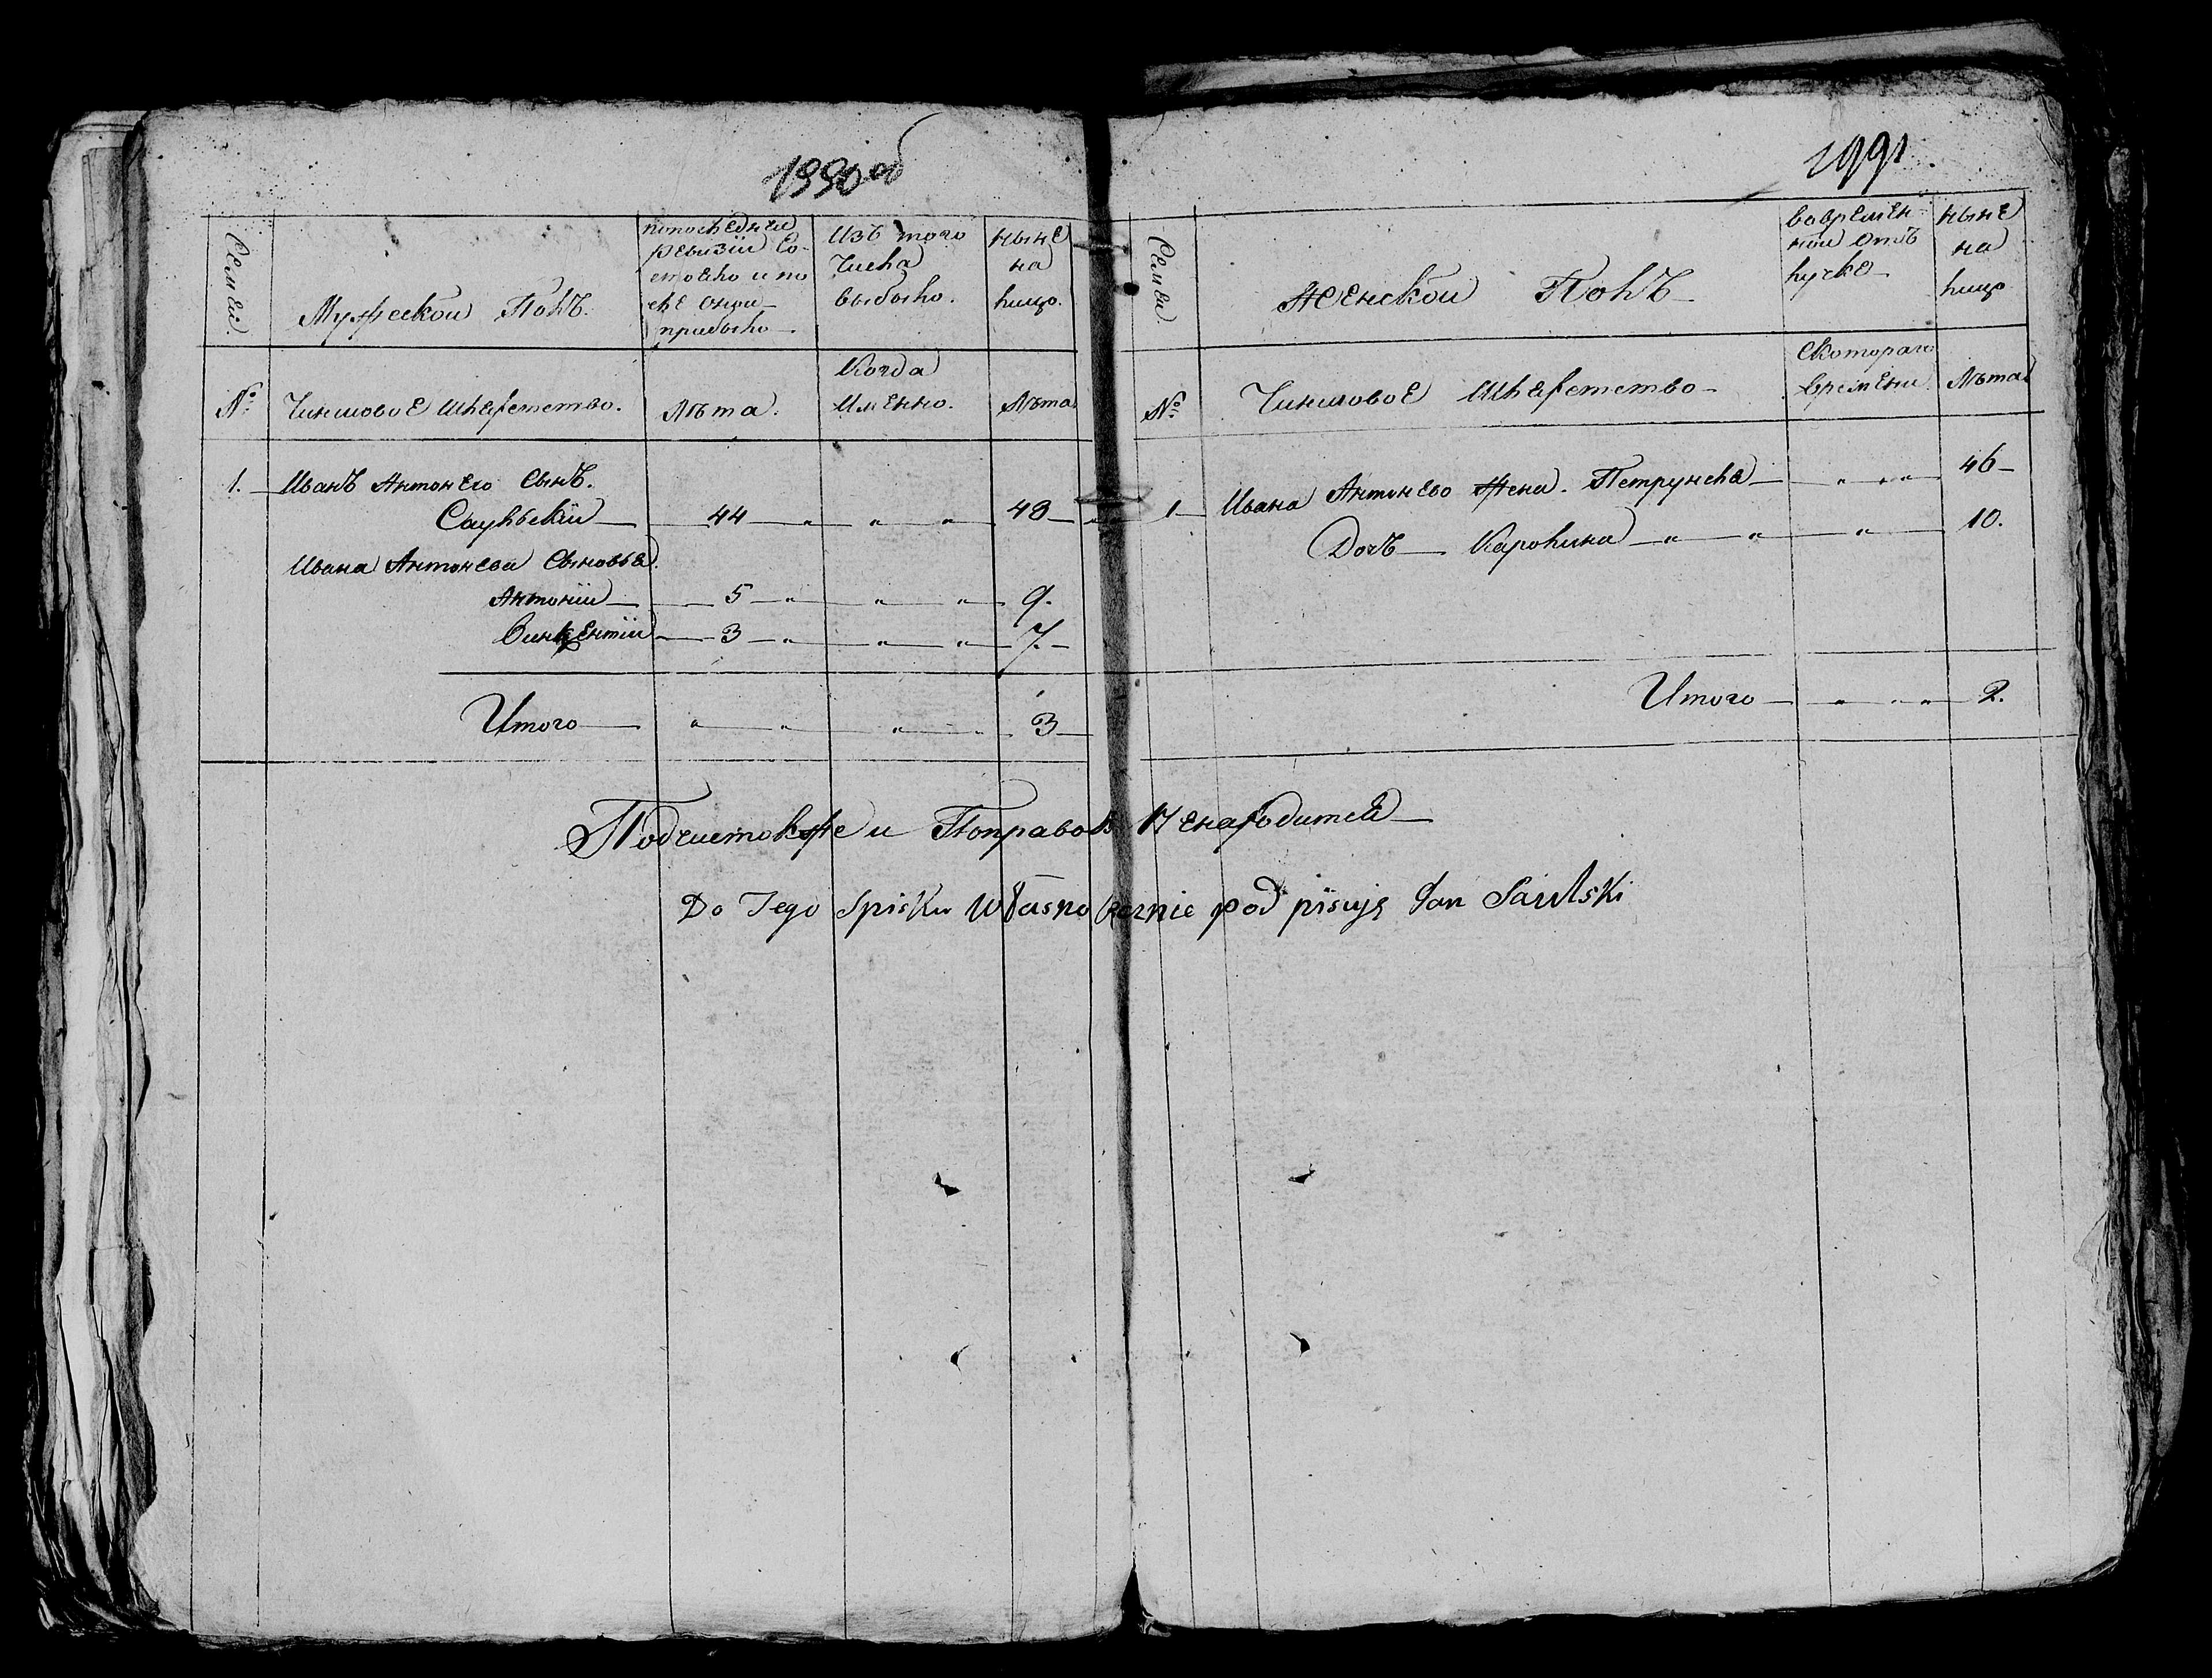 1990 об
Семьи.
Мужеской Полъ.
попоследнеи
ревизіи Со-
стояло и по
сле оной
прибыло
Изъ того
Числа
выбыло.
ныне
на
лицо.
№.
Чиншовое Шляхетство.
Лѣта.
Когда
Именно.
Лѣта
1. Иванъ Антонего Сынъ.
Саульскіи 44 " " " 48
Ивана Антонева Сыновья
Антоніи 5 " " " 9.
Винцентіи 3 " " " 7.
Итого " " " 3
1991
Семьи.
Женской Полъ
вовремен-
ной отъ
лучке
ныне
на
лицо
№.
Чиншовое Шляхетство
Скотораго
времени.
Лѣта
1 Ивана Антонево Жена. Петрунеля " " " 46
Дочъ Каролина " " " 10.
Итого " " " 2.
Подчистокже и Поправок Ненаходится
Do Tego Spisku Własno Ręcznie pod pisuję Jan Saulski